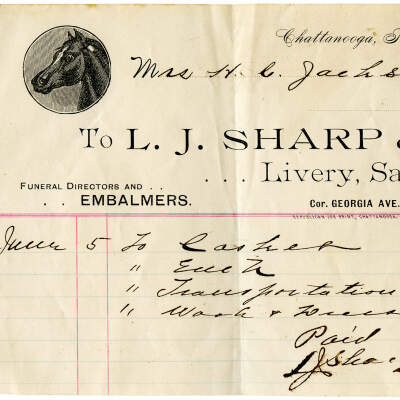 Chattanooga,
Mrs H. C. Jacks
To L. J. SHARP &
. . . Livery, Sa
FUNERAL DIRECTORS AND . .
. . EMBALMERS.
Cor. GEORGIA AVE.
REPUBLICAN JOB PRINT, CHATTANOOGA.
June 5 To Casket
" 
" Transportation
" Wash &
Paid